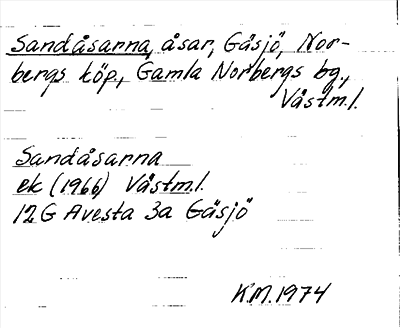 Sandåsarna, åsar, Gäsjö, Nor-
bergs köp., Gamla Norbergs bg.,
Västml.
Sandåsarna
ek (1966) Västml.
12G Avesta 3a Gäsjö
K.M. 1974